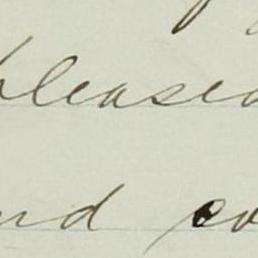 pleased
and co